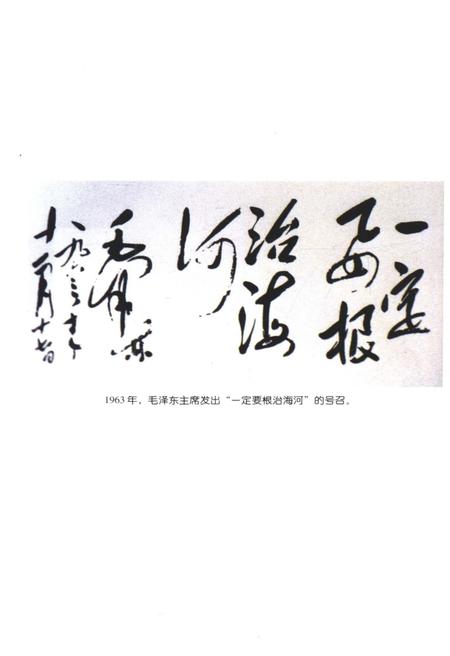 一定
要根
治海
河
毛泽东
一九六三年
十一月十七日
1963年，毛泽东主席发出“一定要根治海河”的号召。